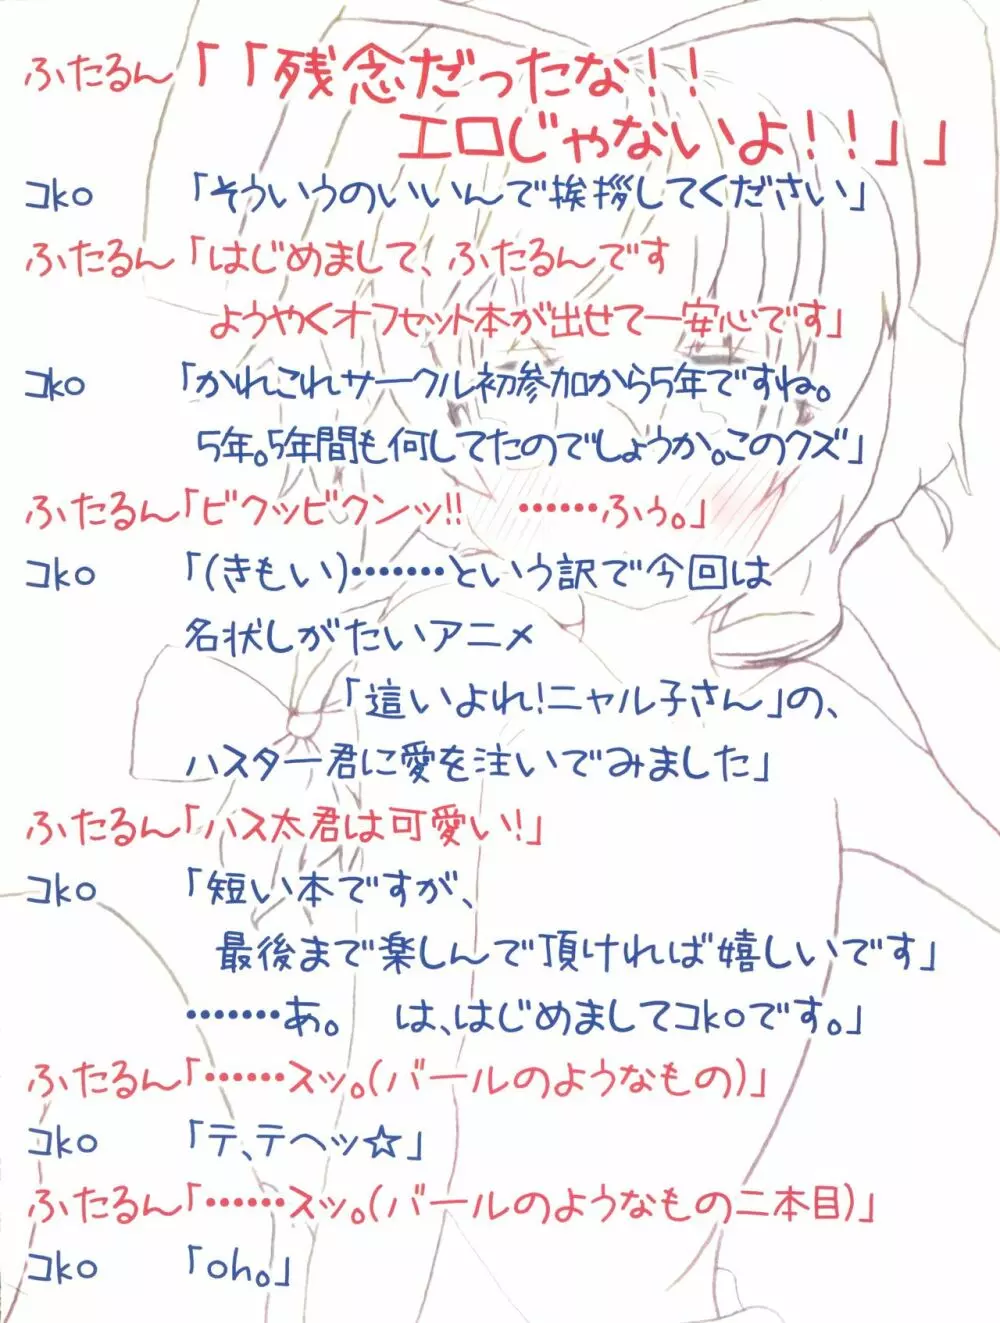 ふたるん「「残念だったな!!
エロじゃないよ!!」」
コko 「そういうのいいんで挨拶してください」
ふたるん「はじめまして、ふたるんです
ようやくオフセット本が出せて一安心です」
コko 「かれこれサークル初参加から5年ですね。
5年。5年間も何してたのでしょうか。このクズ」
ふたるん「ビクッビクンッ!! ……ふぅ。」
コko 「(きもい)………という訳で今回は
名状しがたいアニメ
「這いよれ!ニャル子さん」の、
ハスター君に愛を注いでみました」
ふたるん「ハス太君は可愛い!」
コko 「短い本ですが、
最後まで楽しんで頂ければ嬉しいです」
………あ。 は、はじめましてコkoです。」
ふたるん「……スッ。(バールのようなもの)」
コko 「テ、テヘッ☆」
ふたるん「……スッ。(バールのようなもの二本目)」
コko 「oh。」